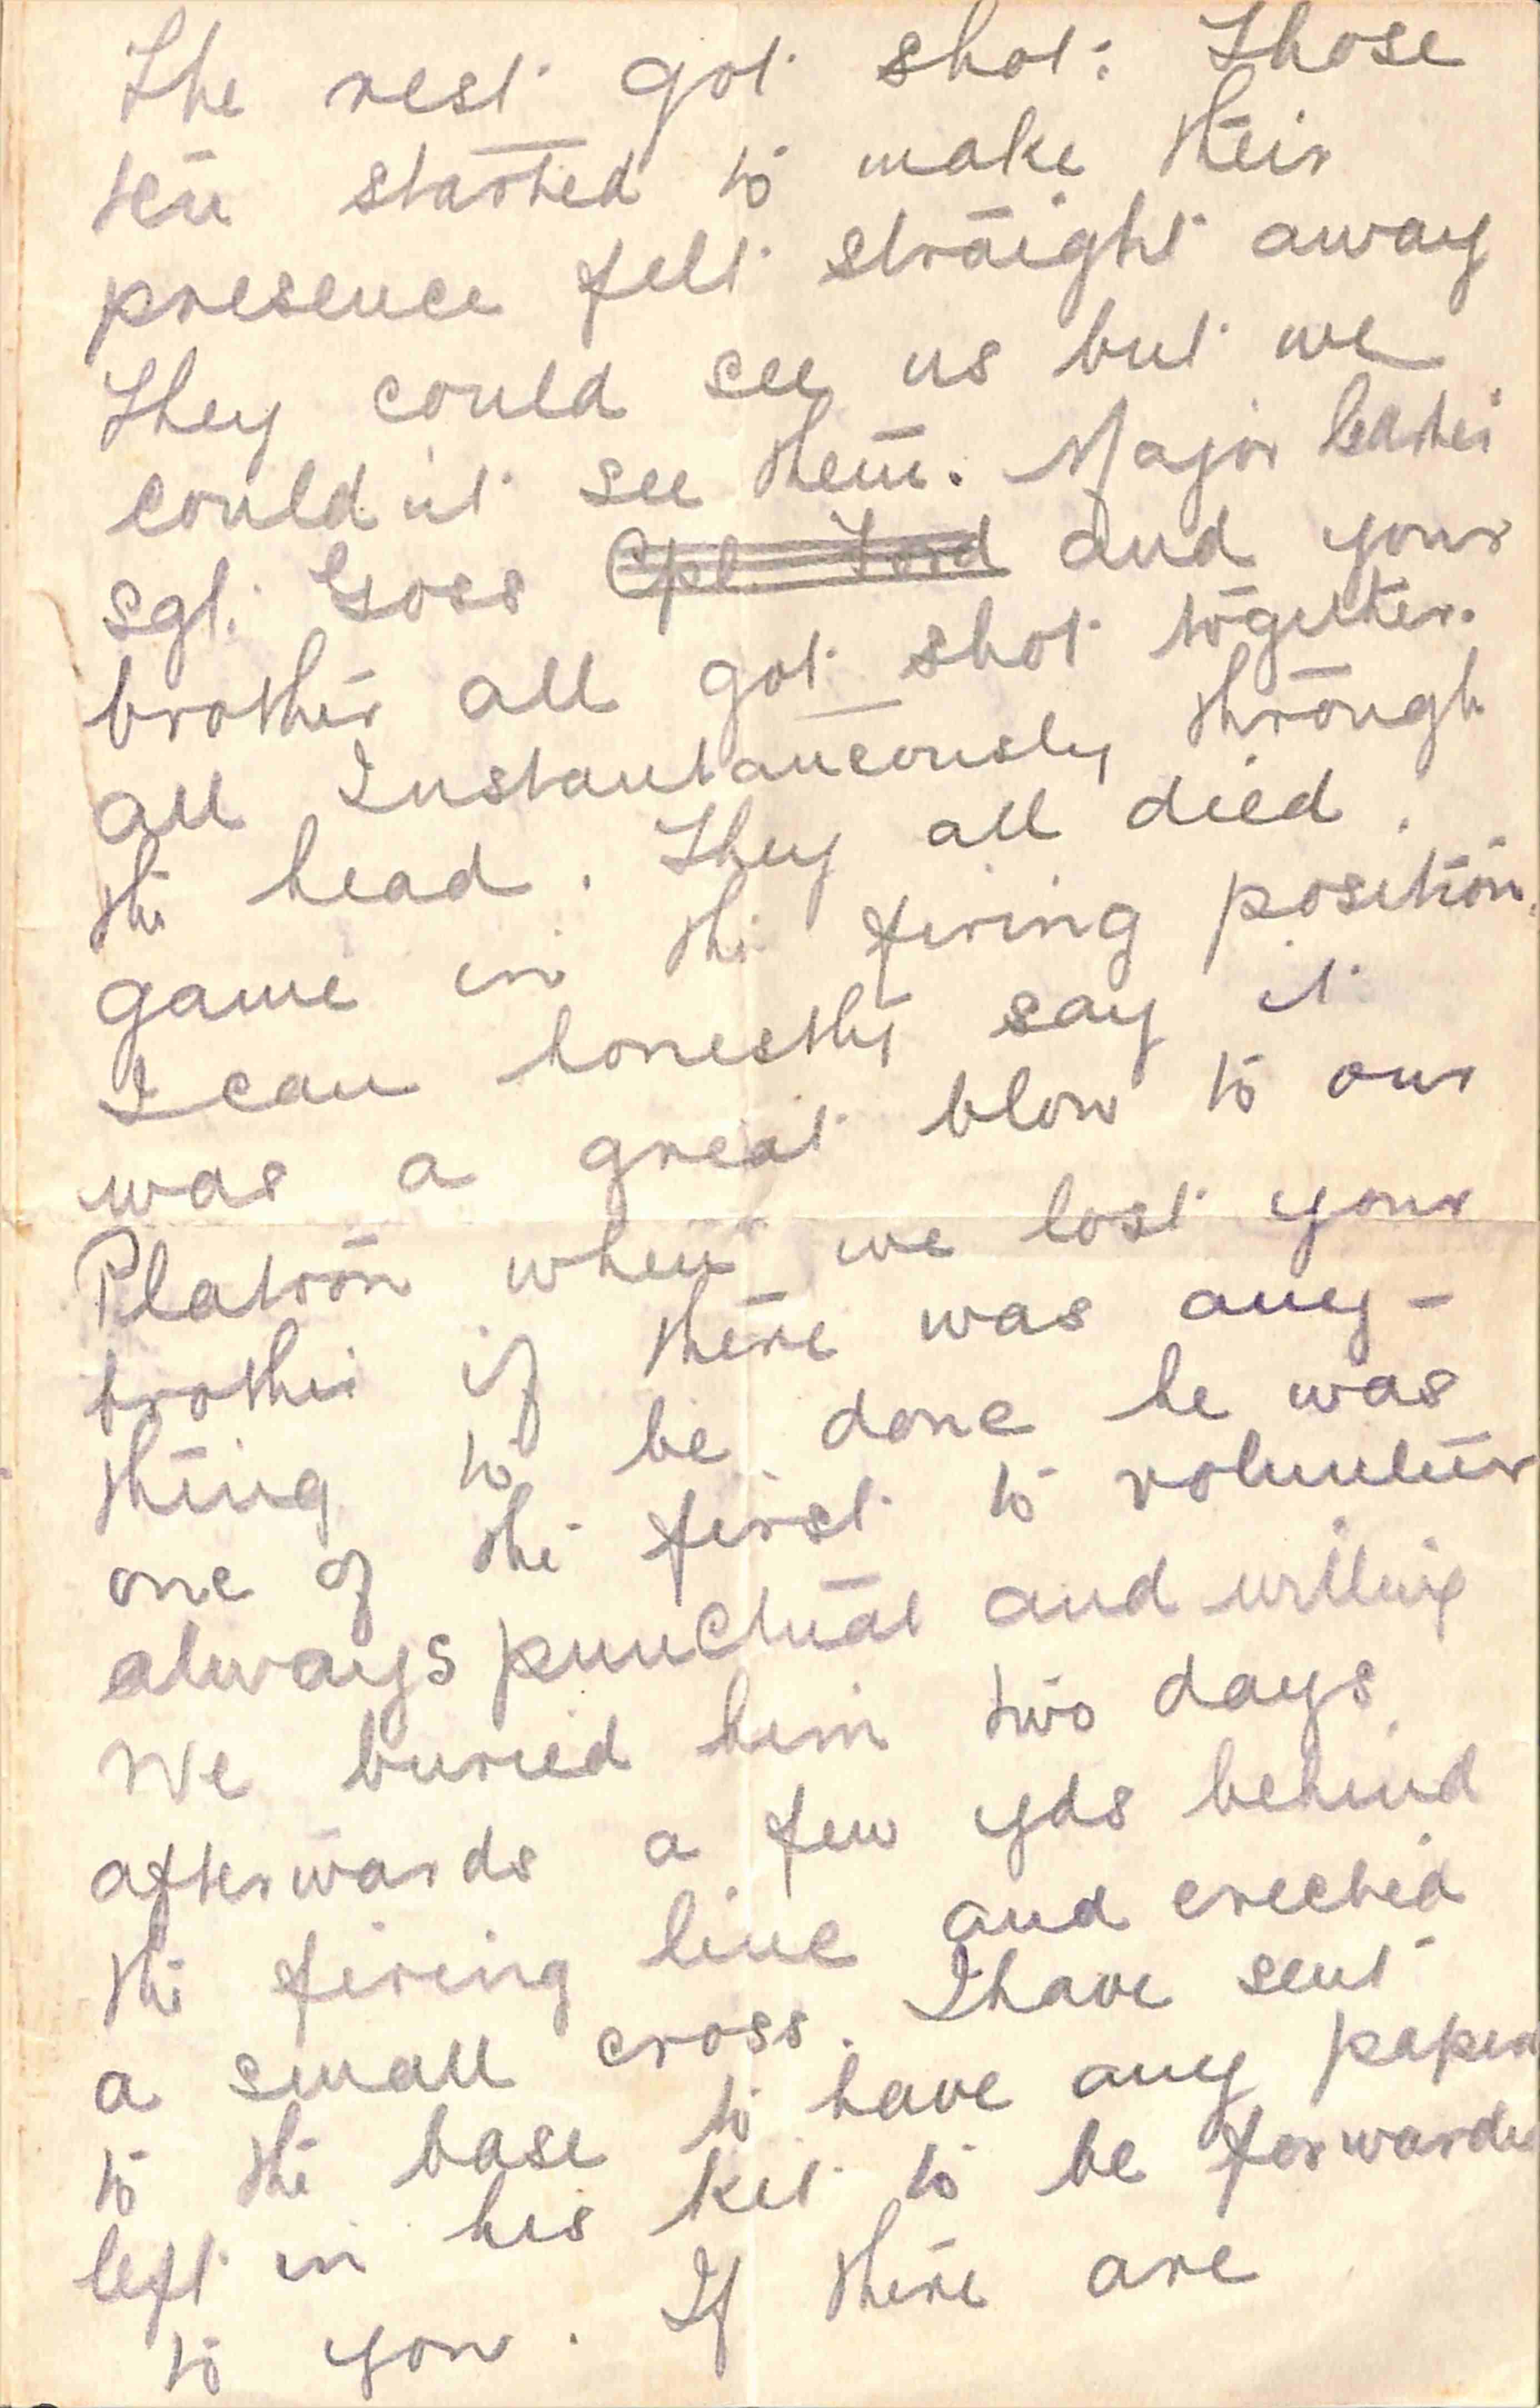 The rest got shot: Those
ten started to make their
presence felt straight away
They could see us but we
could'nt see them. Major
Sgt. Goes Cpl. Ford and your
brother all got shot together.
all Instantaneously through
the head. They all died.
game in the firing position.
I can honestly say it
was a great blow to our
Platoon when we lost your
brother if there was any-
thing to be done he was
one of the first to volunteer
always punctual and willing
We buried him two days
afterwards a few yds behind
the firing line and erected
a small cross. I have sent
to the base to have any papers
left in his kit to be forwarded
to you. If there are